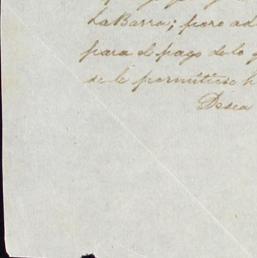 La Barra; pero ad
para el pago de lo q
se le permitiese h
Desea